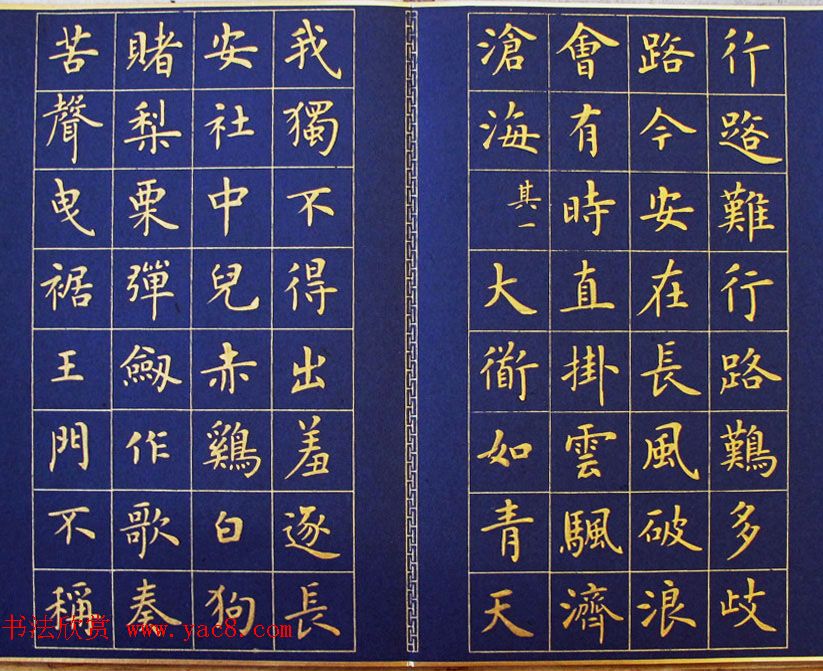 行路難行路難多歧
路今安在長風破浪
會有時直掛雲颿濟
滄海 其一 大衜如青天
我獨不得出羞逐長
安社中兒赤鷄白狗
賭梨栗彈劒作歌奏
苦聲曳裾王門不稱
书法欣赏 www.yac8.com